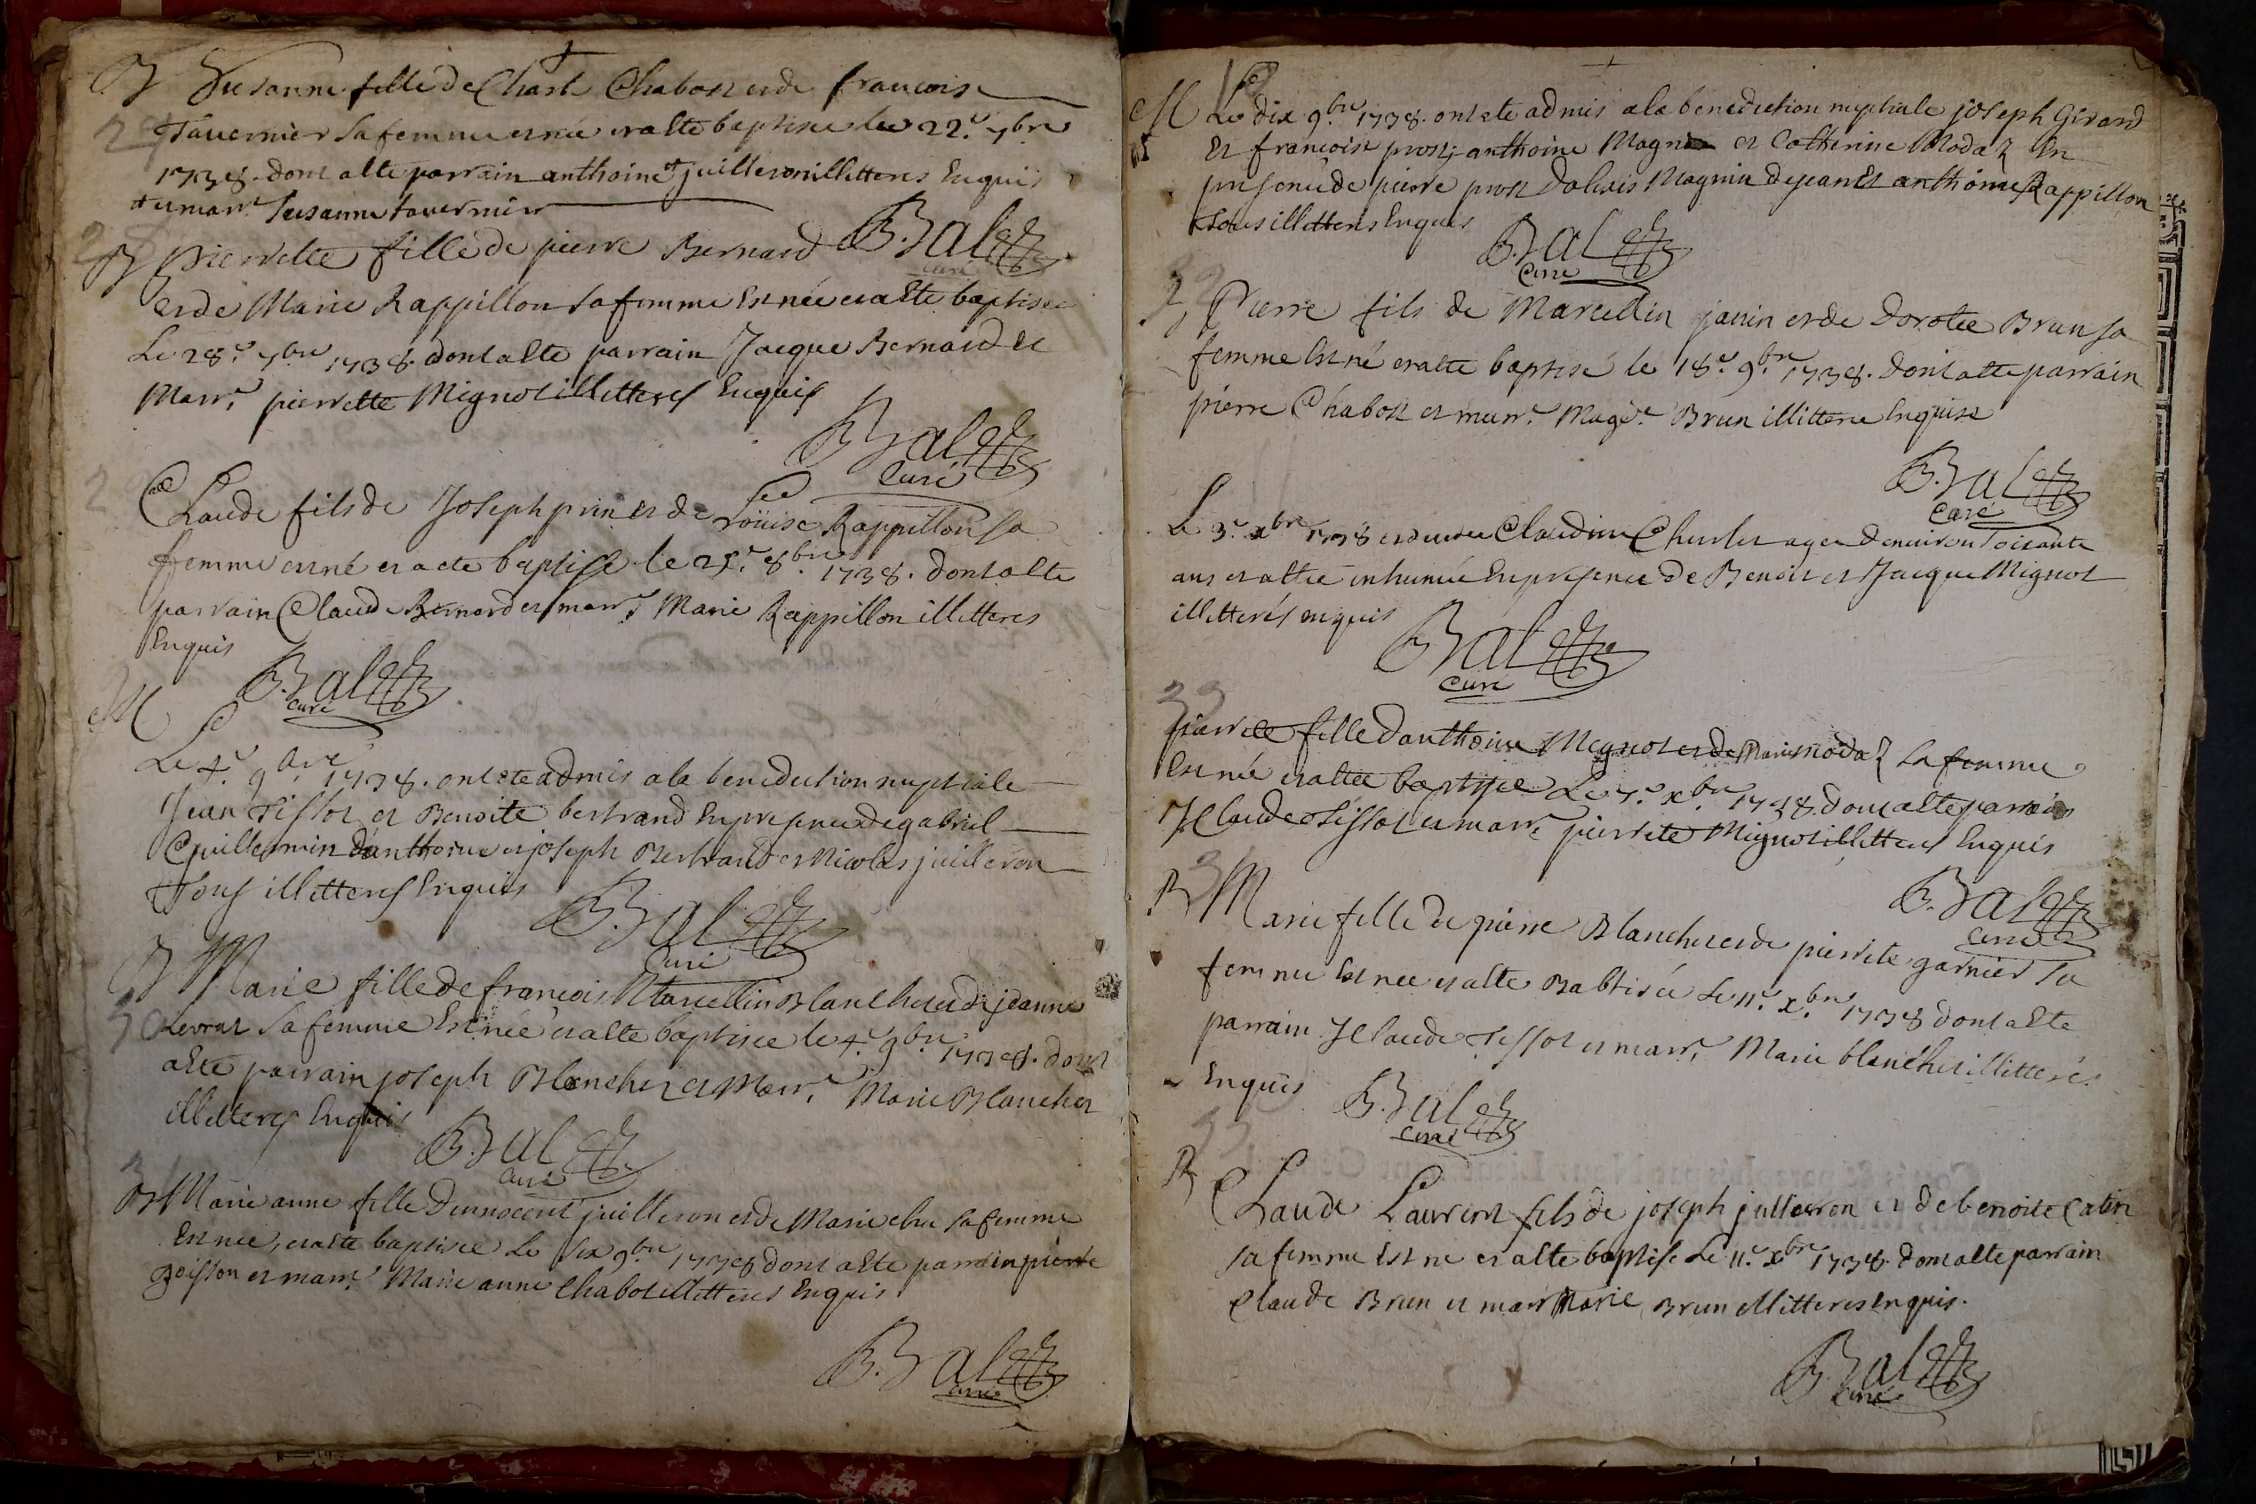 B Susanne fille de Charle Chabost et de francoise
27 Tavernier sa femme est née et a esté baptisée le 22e 7bre
1738. dont a esté parrain anthoine juilleron illitteres Enquis
et marr. Susanne tavernier
28
B pierrette fille de pierre Bernard B. Balez
curé
et de Marie Rappillon sa femme Est née et a Esté baptisee
Le 28e 7bre 1738. dont a esté parrain Jacque Bernard Et
Marr. pierrette Mignot illitteres Enquis
B Balez
Curé
Claude fils de Joseph prin et de Loüise Rappillon sa
femme est né et a ete baptisé le 25e 8bre 1738. dont a esté
parrain Claude Bernard et marr. Marie Rappillon illitteres
Enquis
B. Balez
curé
M
Le 4e 9bre 1738. ont ete admis a la benediction nuptiale
Jean Tissot et Benoite bertrand En presence de gabriel
Guillermin danthoine et joseph Bertrand et Nicolas juilleron
Tous illitteres Enquis
B. Balez
Curé
B Marie fille de francois Marcellin Blanchet et de jeanne
30 Levrat sa femme Est née et a esté baptisee le 4e 9bre 1738. dont
a esté parrain joseph Blanchet et Marr. Marie Blanchet
illitteres Enquis
B. Balez
Curé
31
B Marie anne fille Dinnocent juilleron et de Marie sa femme
Est née, et a esté baptisee Le six 9bre 1738 dont a esté parrain pierre
poisson et marr. Marie anne Chabot illitteres Enquis
B. Balez
curé
M Le dix 9bre 1738. ont ete admis a la benediction nuptiale joseph Girard
Et francoise prost; anthoine Magnin et Catherine Modaz En
presence de pierre prost Magnin de jean Et anthoine Rappillon
tous illitteres Enquis
B. Balez
Curé
32
B Pierre fils de Marcellin janin et de Dorotée Brun sa
femme Est né et a esté baptisé le 18e 9bre 1738. dont a esté parrain
pierre Chabost et marr. Brun illitteres Enquis
B. Balez
Curé
Le 3e xbre 1738 est decedee Claudine agee denviron soisante
ans et a esté inhumée En presence de Benoit et Jacque Mignot
illitterés enquis
B Balez
Curé
33
pierrete fille danthoine Mignot et de Marie modaz sa femme
Est née et a esté baptisee Le 7e xbre 1738. dont a esté parrain
Claude Tissot et marr. pierrete Mignot illitteres Enquis
B. Balez
Curé
34
B Marie fille de pierre Blanchet et de pierrete garnier sa
femme Est nee et a esté Babtisée Le 11e xbre 1738 dont a esté
parrain Claude Tissot et marr. Marie blanchet illitterés
Enquis
B. Balez
Curé
35
B Claude Laurent fils de joseph juilleron et de benoite Catin
sa femme Est né et a esté baptisé Le 11e xbre 1738. dont a esté parrain
Claude Brun et marr Marie Brun illitteres Enquis.
B. Balez
Curé